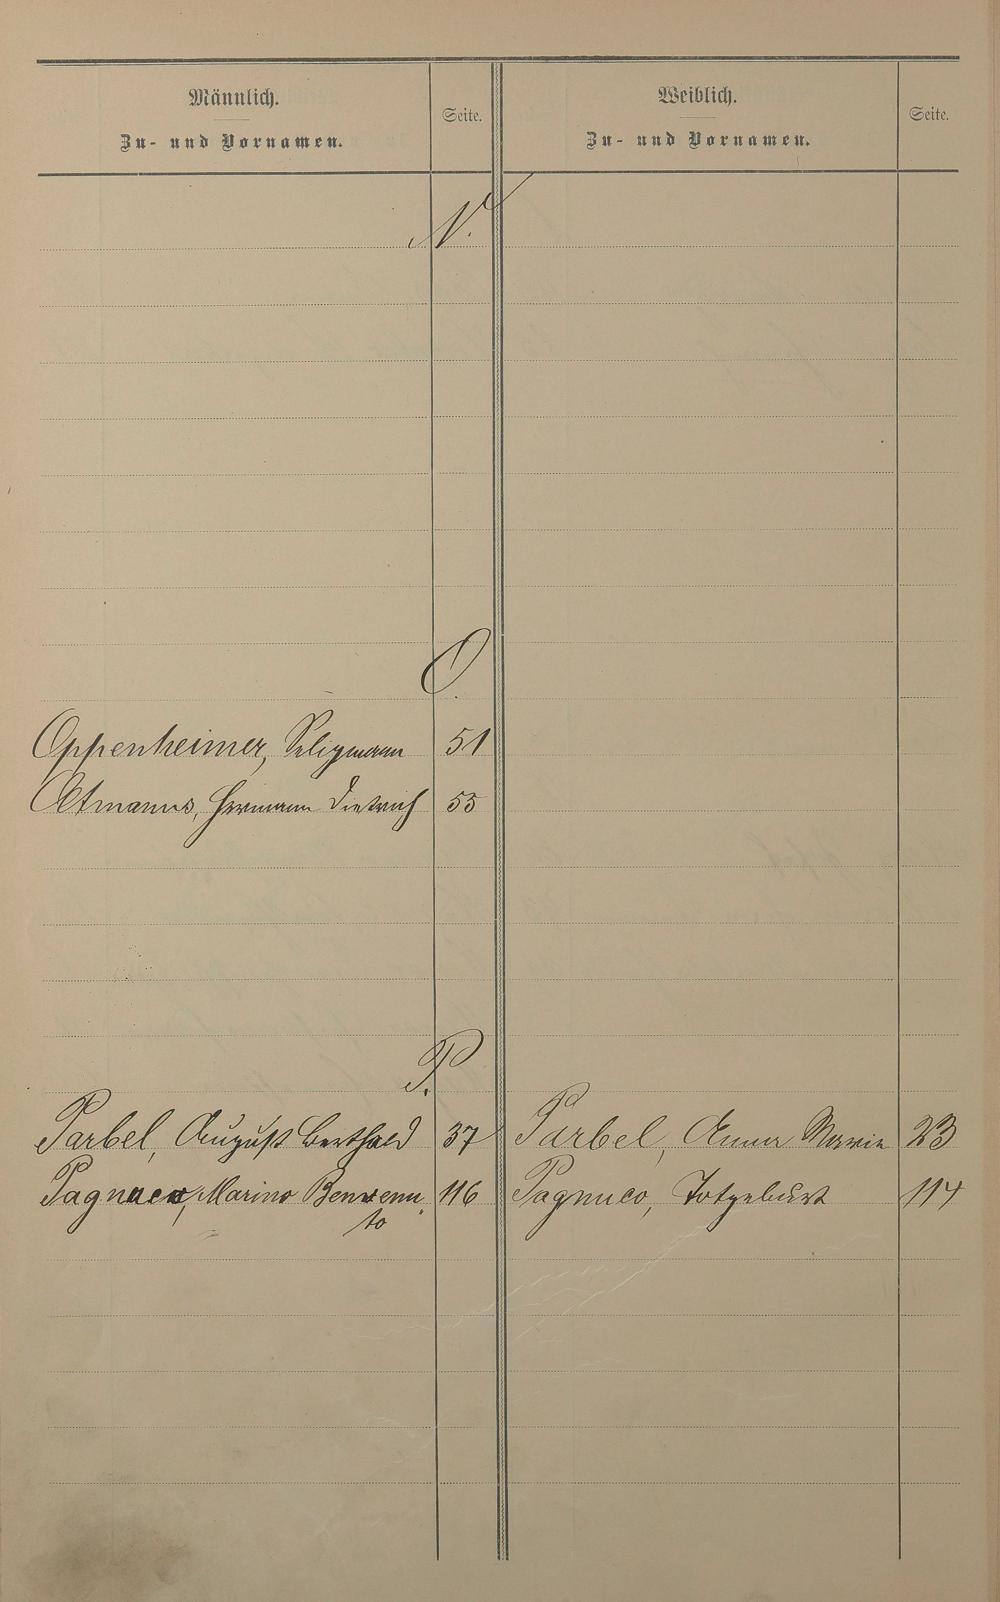 Männlich.
Zu- und Vornamen.
Seite.
Weiblich.
Zu- und Vornamen.
Seite.
N.
O.
Oppenheimer, Seligmann 51
Oltmanns, Hermann Dietrich 55
P.
Parbel, August Berthold 37
Parbel, Anna Marie 23
Pagnucco, Marino Benvenu-
to 116
Pagnuco, Totgeburt 114